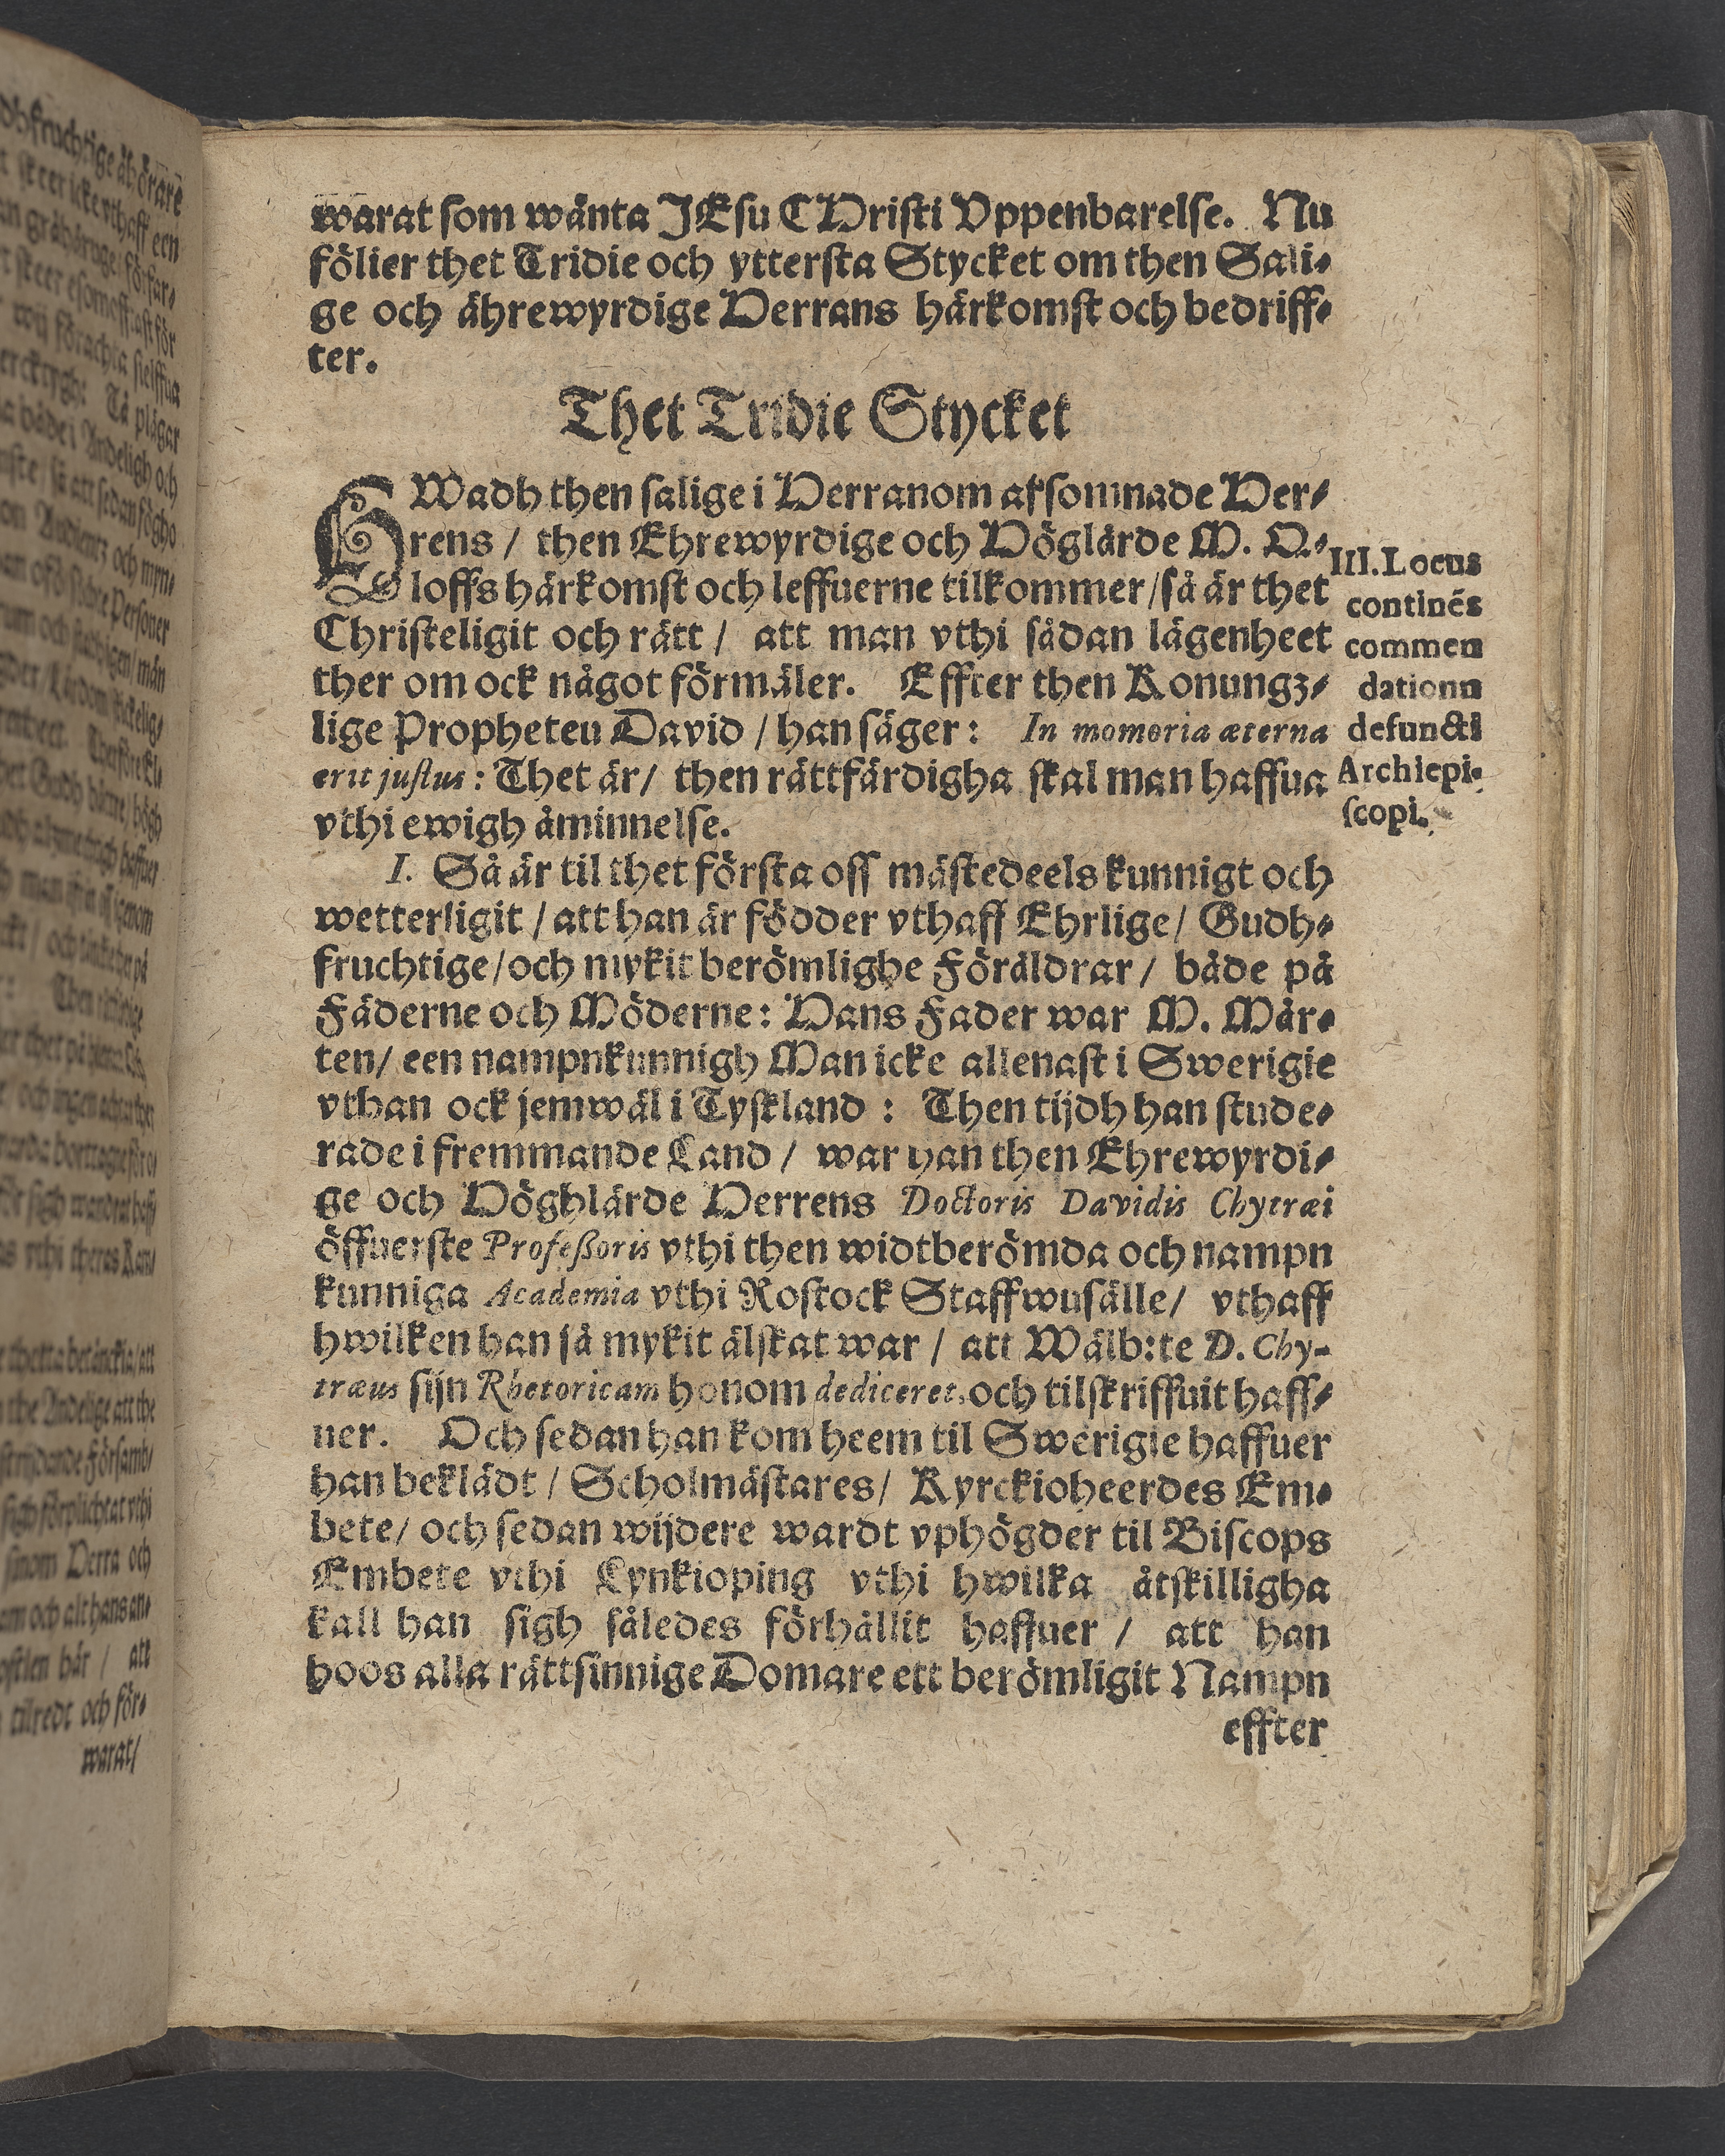 warat som wänta JEsu CHristi Vppenbarelse. Nu
fölier thet Tridie och ytterſta Stycket om then Sali-
ge och ährewyrdige Herrans härkomſt och bedriff-
ter.
Thet Tridie Stycket
HWadh then ſalige i Herranom afſomnade Her-
rens / then Ehrewyrdige och Höglärde M. O-
loffs härkomſt och leffuerne tilkommer / ſå är thet
Chriſteligit och rätt / att man vthi ſådan lägenheet
ther om ock något förmäler. Effter then Konungz-
lige Propheteu David / han ſäger: In momoria æterna
erit juſtus: Thet är / then rättfärdigha ſkal man haffua
vthi ewigh åminnelſe.
III. Locus
continẽs
commen
dationn
defuncti
Archiepi-
ſcopi.
I. Så är til thet förſta oſſ mäſtedeels kunnigt och
wetterligit / att han är födder vthaff Ehrlige / Gudh-
fruchtige / och mykit berömlighe Föräldrar / både på
Fäderne och Möderne: Hans Fader war M. Mår-
ten / een nampnkunnigh Man icke allenaſt i Swerigie
vthan ock jemwäl i Tyſkland : Then tijdh han ſtude-
rade i fremmande Land / war han then Ehrewyrdi-
ge och Höghlärde Herrens Doctoris Davidis Chytræi
öffuerſte Profeßoris vthi then widtberömda och nampn
kunniga Academia vthi Roſtock Staffwuſälle / vthaff
hwilken han ſå mykit älſkat war / att Wälb:te D. Chy-
træus ſijn Rhetoricam honom dediceret, och tilſkriffuit haff-
uer. Och ſedan han kom heem til Swerigie haffuer
han beklädt / Scholmäſtares / Kyrckioheerdes Em-
bete / och ſedan wijdere wardt vphögder til Biſcops
Embete vthi Lynkioping vthi hwilka åtſkilligha
kall han ſigh ſåledes förhållit haffuer / att han
hoos alla rättſinnige Domare ett berömligit Nampn
effter